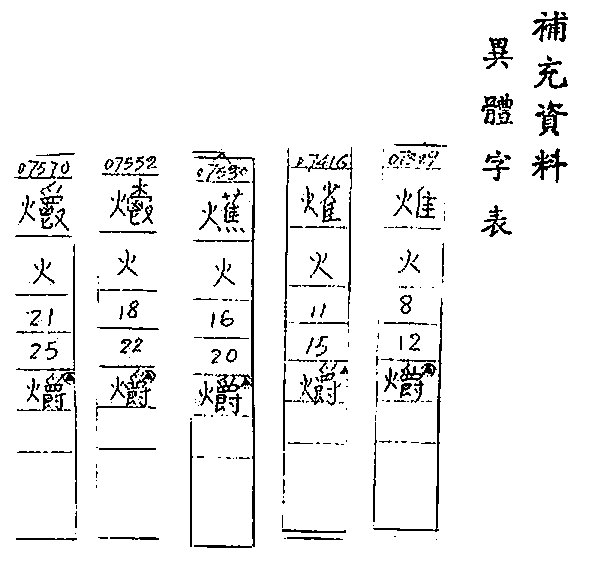 補充資料
異體字表
火
8
12
爝
07416
火
11
15
爝
07530
火
16
20
爝
07552
火
18
22
爝
07570
火
21
25
爝